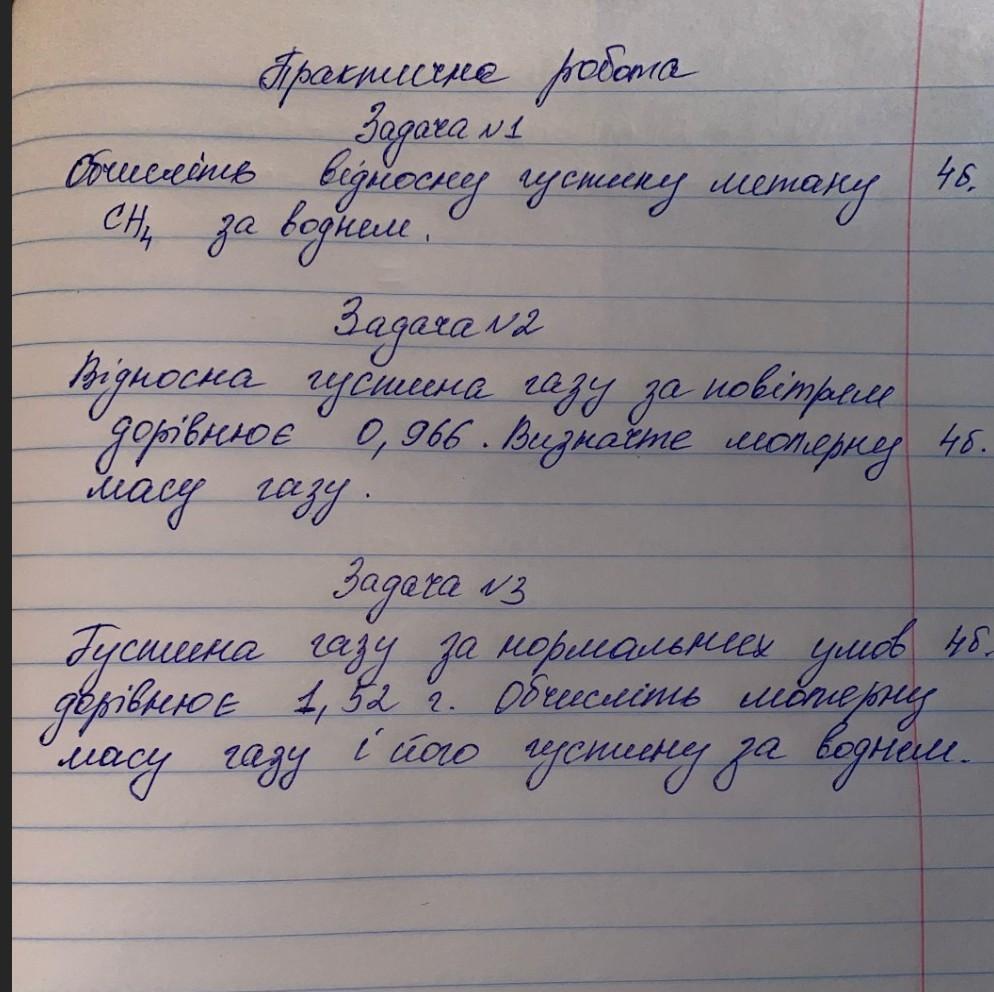 Практична робота
Задача №1
Обчисліть відносну густину метану 4б.
CH₄ за воднем.
Задача №2
Відносна густина газу за повітрям
дорівнює 0,966. Визначте молярну 4б.
масу газу.
Задача №3
Густина газу за нормальних умов 4б.
дорівнює 1,52 г. Обчисліть молярну
масу газу і його густину за воднем.